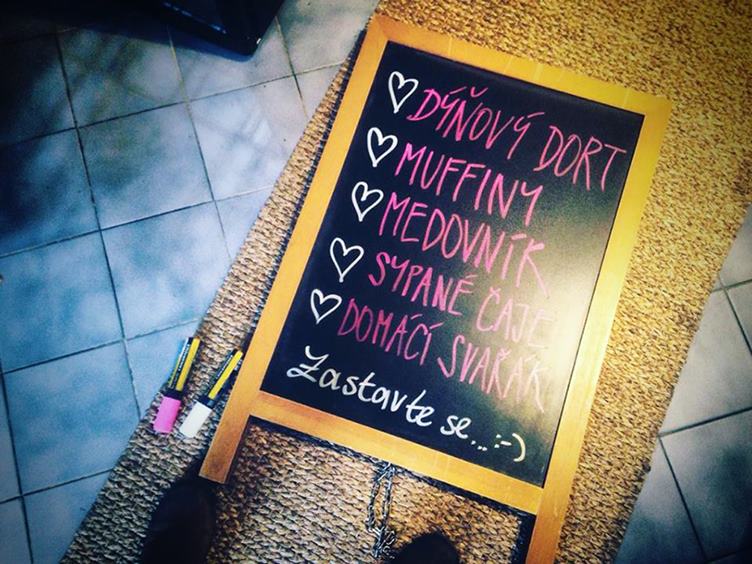 DÝŇOVÝ DORT
MUFFINY
MEDOVNÍK
SYPANÉ ČAJE
DOMÁCÍ SVAŘÁK
Zastavte se...:-)